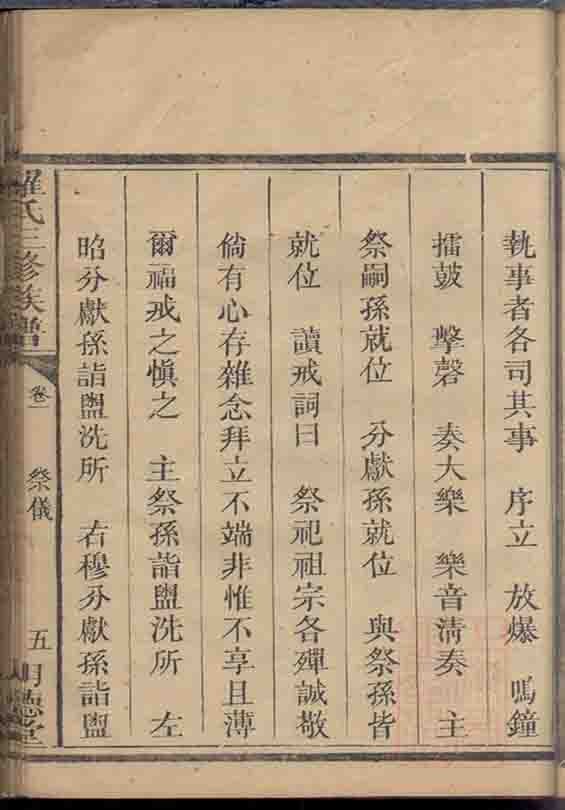 執事者各司其事　序立　放爆　鳴鐘
擂鼓　擊磬　奏大樂　樂音清奏　主
祭嗣孫就位　分獻孫就位　與祭孫皆
就位　讀戒詞曰　祭祀祖宗各殫誠敬
倘有心存雜念拜立不端非惟不享且薄
爾福戒之慎之　主祭孫詣盥洗所　左
昭分獻孫詣盥洗所　右穆分獻孫詣盥
羅氏三修族譜　卷一　祭儀　五　明德堂